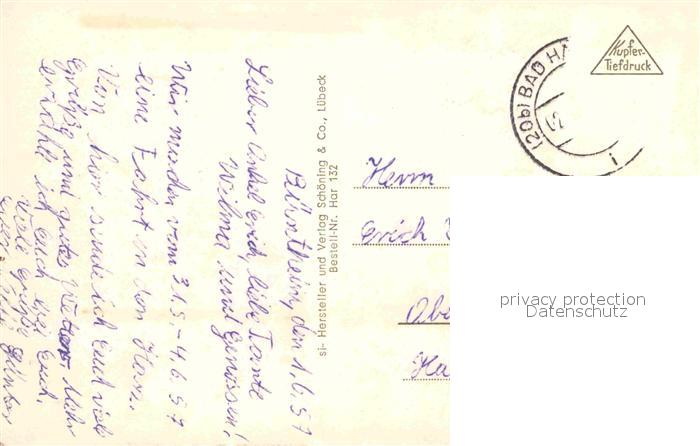 Kupfer-
Tiefdruck
(20b) BAD HA
Herrn
Erich
Obe
Ha
privacy protection
Datenschutz
si- Hersteller und Verlag Schöning & Co., Lübeck
Bestell-Nr. Har 132
den 1.6.57
Lieber Onkel Erich, liebe Tante
Wilma und
Wir machen vom 31.5.-4.6.57
eine Fahrt in den Harz.
Von hier sende ich euch viele
Grüße und gutes Wetter. Mehr
erzähle ich euch bei euch.
Viele Grüße